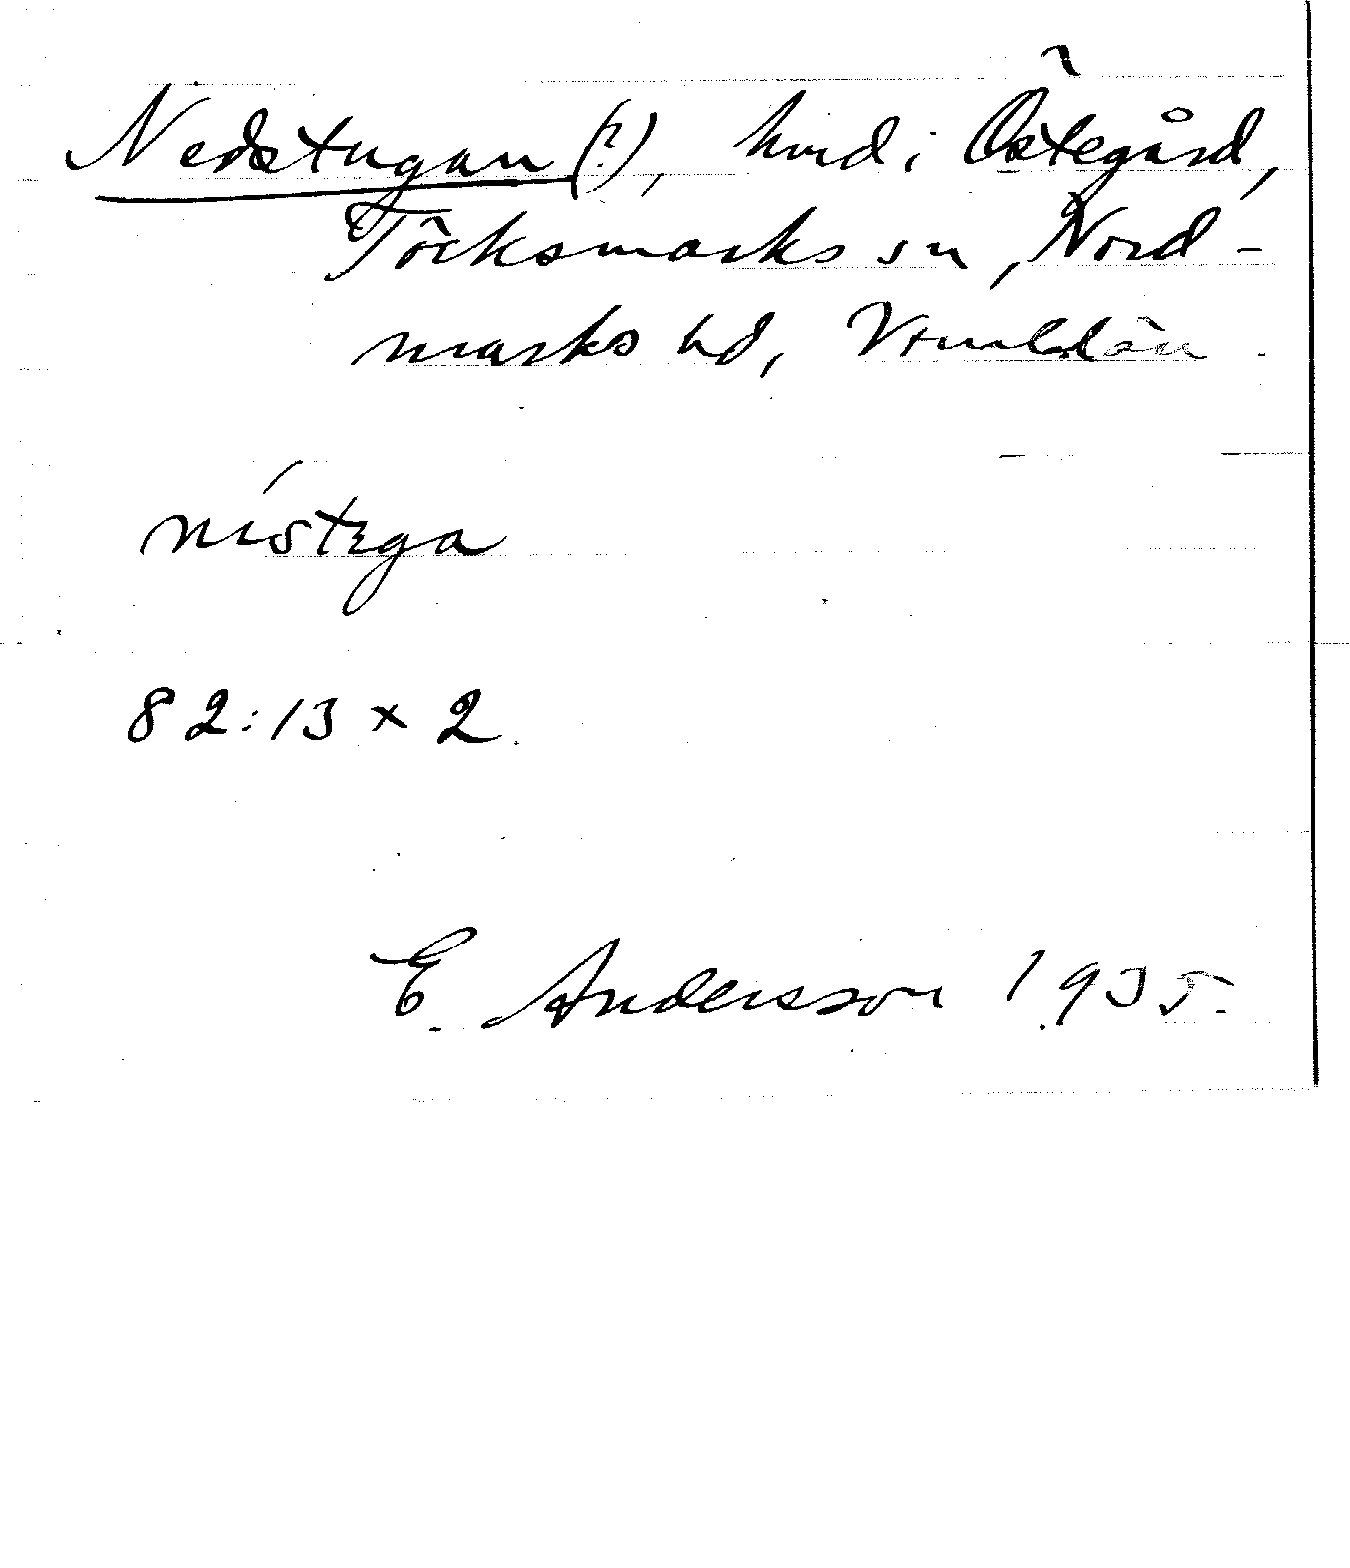 Nedstugan (?), hmd i Östegård,
Töcksmarks sn, Nord-
marks hd, Värml. län.
nístega
82:13 x 2.
E. Andersson 1935.